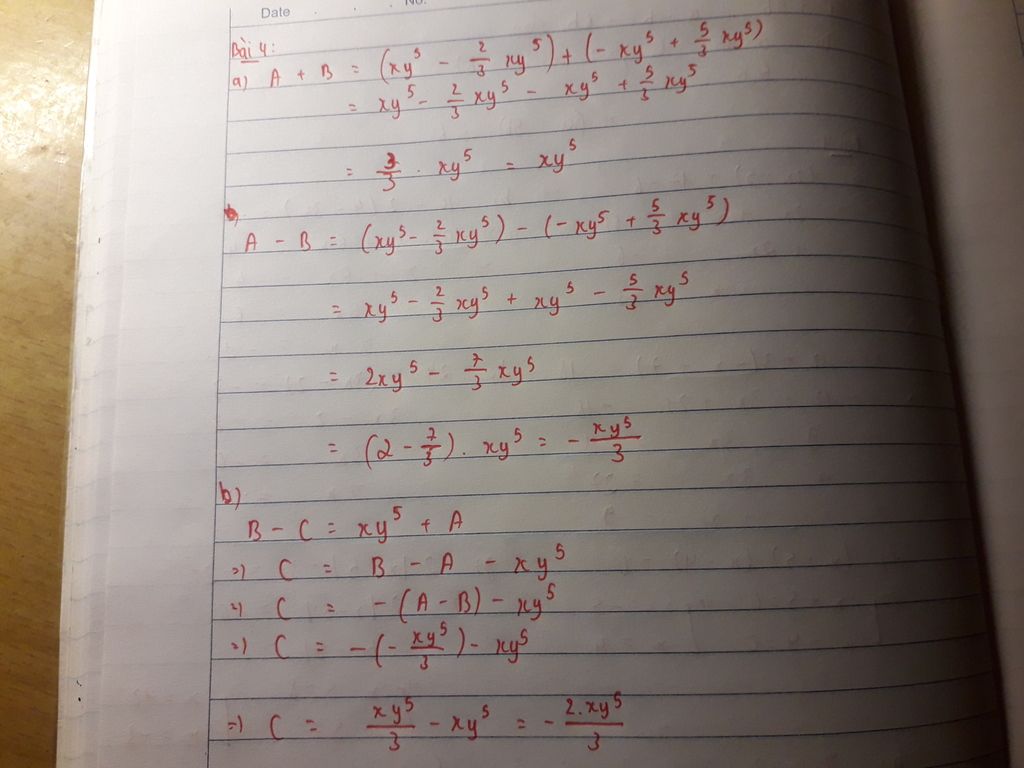 Date . . No.
Bài 4:
a) A + B = (xy⁵ - 2/3 xy⁵) + (- xy⁵ + 5/3 xy⁵)
= xy⁵ - 2/3 xy⁵ - xy⁵ + 5/3 xy⁵
= 3/3 . xy⁵ = xy⁵
A - B = (xy⁵ - 2/3 xy⁵) - (- xy⁵ + 5/3 xy⁵)
= xy⁵ - 2/3 xy⁵ + xy⁵ - 5/3 xy⁵
= 2xy⁵ - 7/3 xy⁵
= (2 - 7/3) . xy⁵ = - xy⁵/3
b)
B - C = xy⁵ + A
=) C = B - A - xy⁵
=) C = - (A - B) - xy⁵
=) C = - (- xy⁵/3) - xy⁵
=) C = xy⁵/3 - xy⁵ = - 2.xy⁵/3